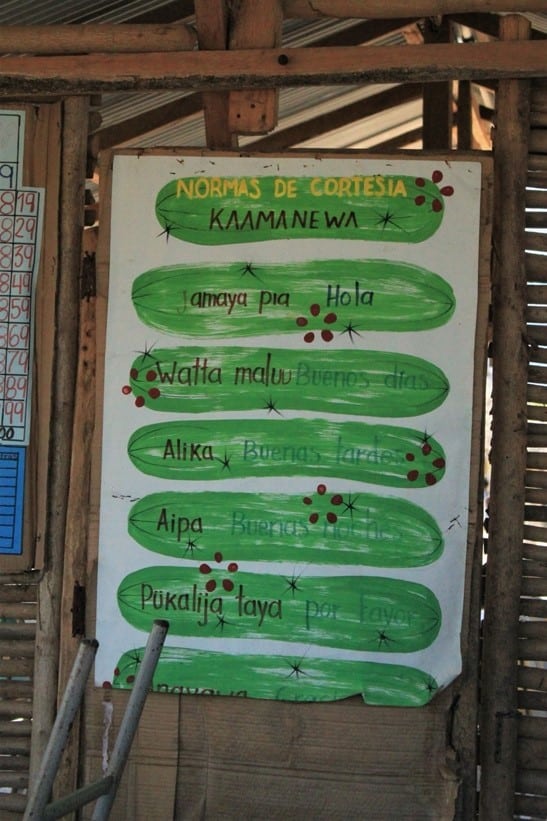 NORMAS DE CORTESIA
KAAMANEWA
Jamaya pia Hola
Watta maluu Buenos días
Alika Buenas tardes
Aipa Buenas noches
Pükalija taya por favor
9
8 19
8 29
8 39
8 49
8 59
8 69
8 79
8 89
99
00